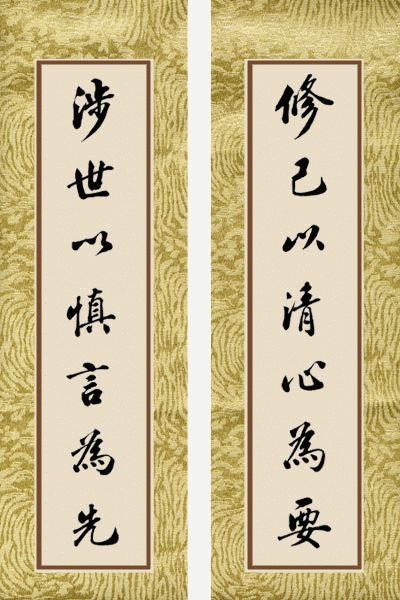 修己以清心為要
涉世以慎言為先